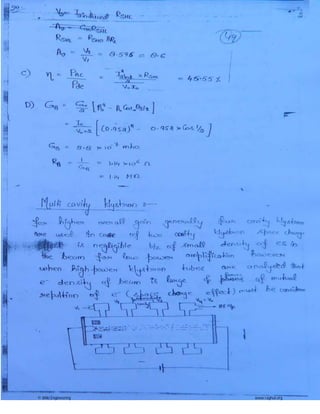 V2 = Induced RSHL
A0 = Gm RSHL
RSHL = RSHO //RL
A0 = V2/V1 = 0.596 = 0.6
49
C) η = Pac/Pdc = × RSHL / V0 I0 = 46.55 %
D) GB = G0/2 [β0² - βi Cos θg/2]
= I0/V0×2 [(0.952)² - 0.952 × Cos /2]
GB = 8.8 × 10⁻⁷ mho
RB = 1/GB = 1.14 × 10⁶ Ω
= 1.14 MΩ
Multi cavity klystron :-
For higher overall gain generally four cavity klystron
are used In case of two cavity klystron space charge
is negligible b/z of small density of es in
the beam for low power amplification however
when high power klystron tubes are analysed that
e⁻ density of beam is large & of mutual
repulsion of e⁻ (space charge effect) must be considered
RF o/p
© Wiki Engineering
www.raghul.org